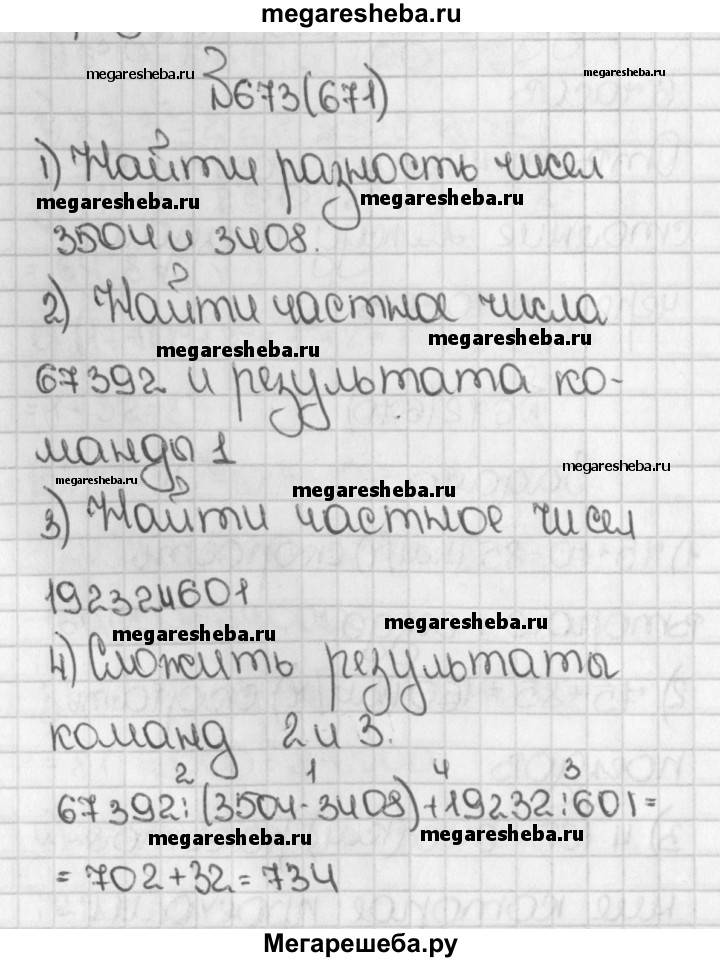 megaresheba.ru
megaresheba.ru megaresheba.ru
№673(671)
1) Найти разность чисел
megaresheba.ru megaresheba.ru
3504 и 3408.
2) Найти частное числа
megaresheba.ru megaresheba.ru
67392 и результата ко-
манды 1
megaresheba.ru megaresheba.ru megaresheba.ru
3) Найти частное чисел
19232 и 601
megaresheba.ru megaresheba.ru
4) Сложить результаты
команд 2 и 3.
2 1 4 3
67392:(3504-3408)+19232:601=
megaresheba.ru megaresheba.ru
=702+32=734
Мегарешеба.ру